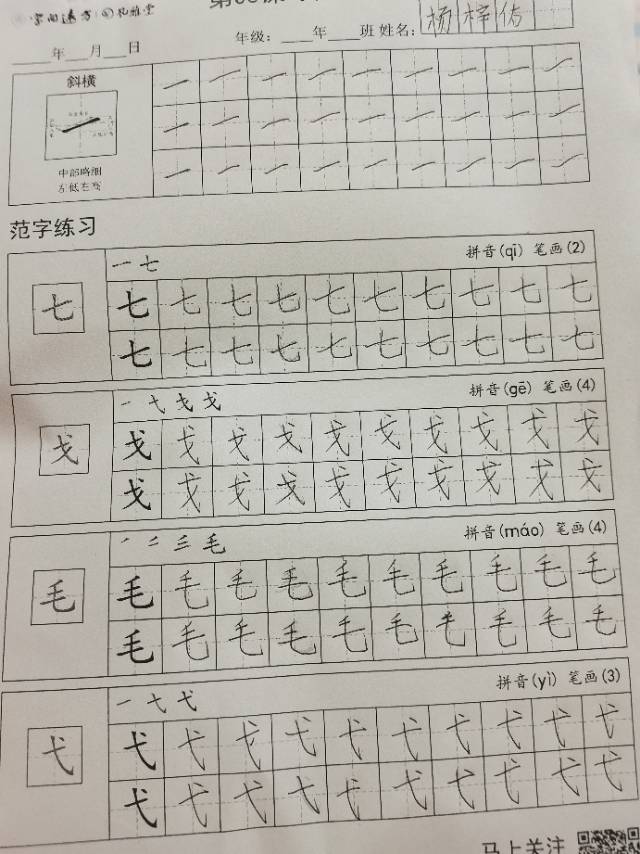 ____年___月___日
年级：____年____班 姓名：杨梓佑
斜横
中部略细
左低右高
范字练习
一 七
拼音(qī) 笔画(2)
七 七 七 七 七 七 七 七 七 七 七
七 七 七 七 七 七 七 七 七 七
拼音(gē) 笔画(4)
戈 戈 戈 戈 戈 戈 戈 戈 戈 戈 戈
戈 戈 戈 戈 戈 戈 戈 戈 戈 戈
拼音(máo) 笔画(4)
毛
毛 毛 毛 毛 毛 毛 毛 毛 毛 毛 毛
毛 毛 毛 毛 毛 毛 毛 毛 毛 毛
拼音(yì) 笔画(3)
弋
弋 弋 弋 弋 弋 弋 弋 弋 弋 弋 弋
弋 弋 弋 弋 弋 弋 弋 弋 弋 弋
马上关注